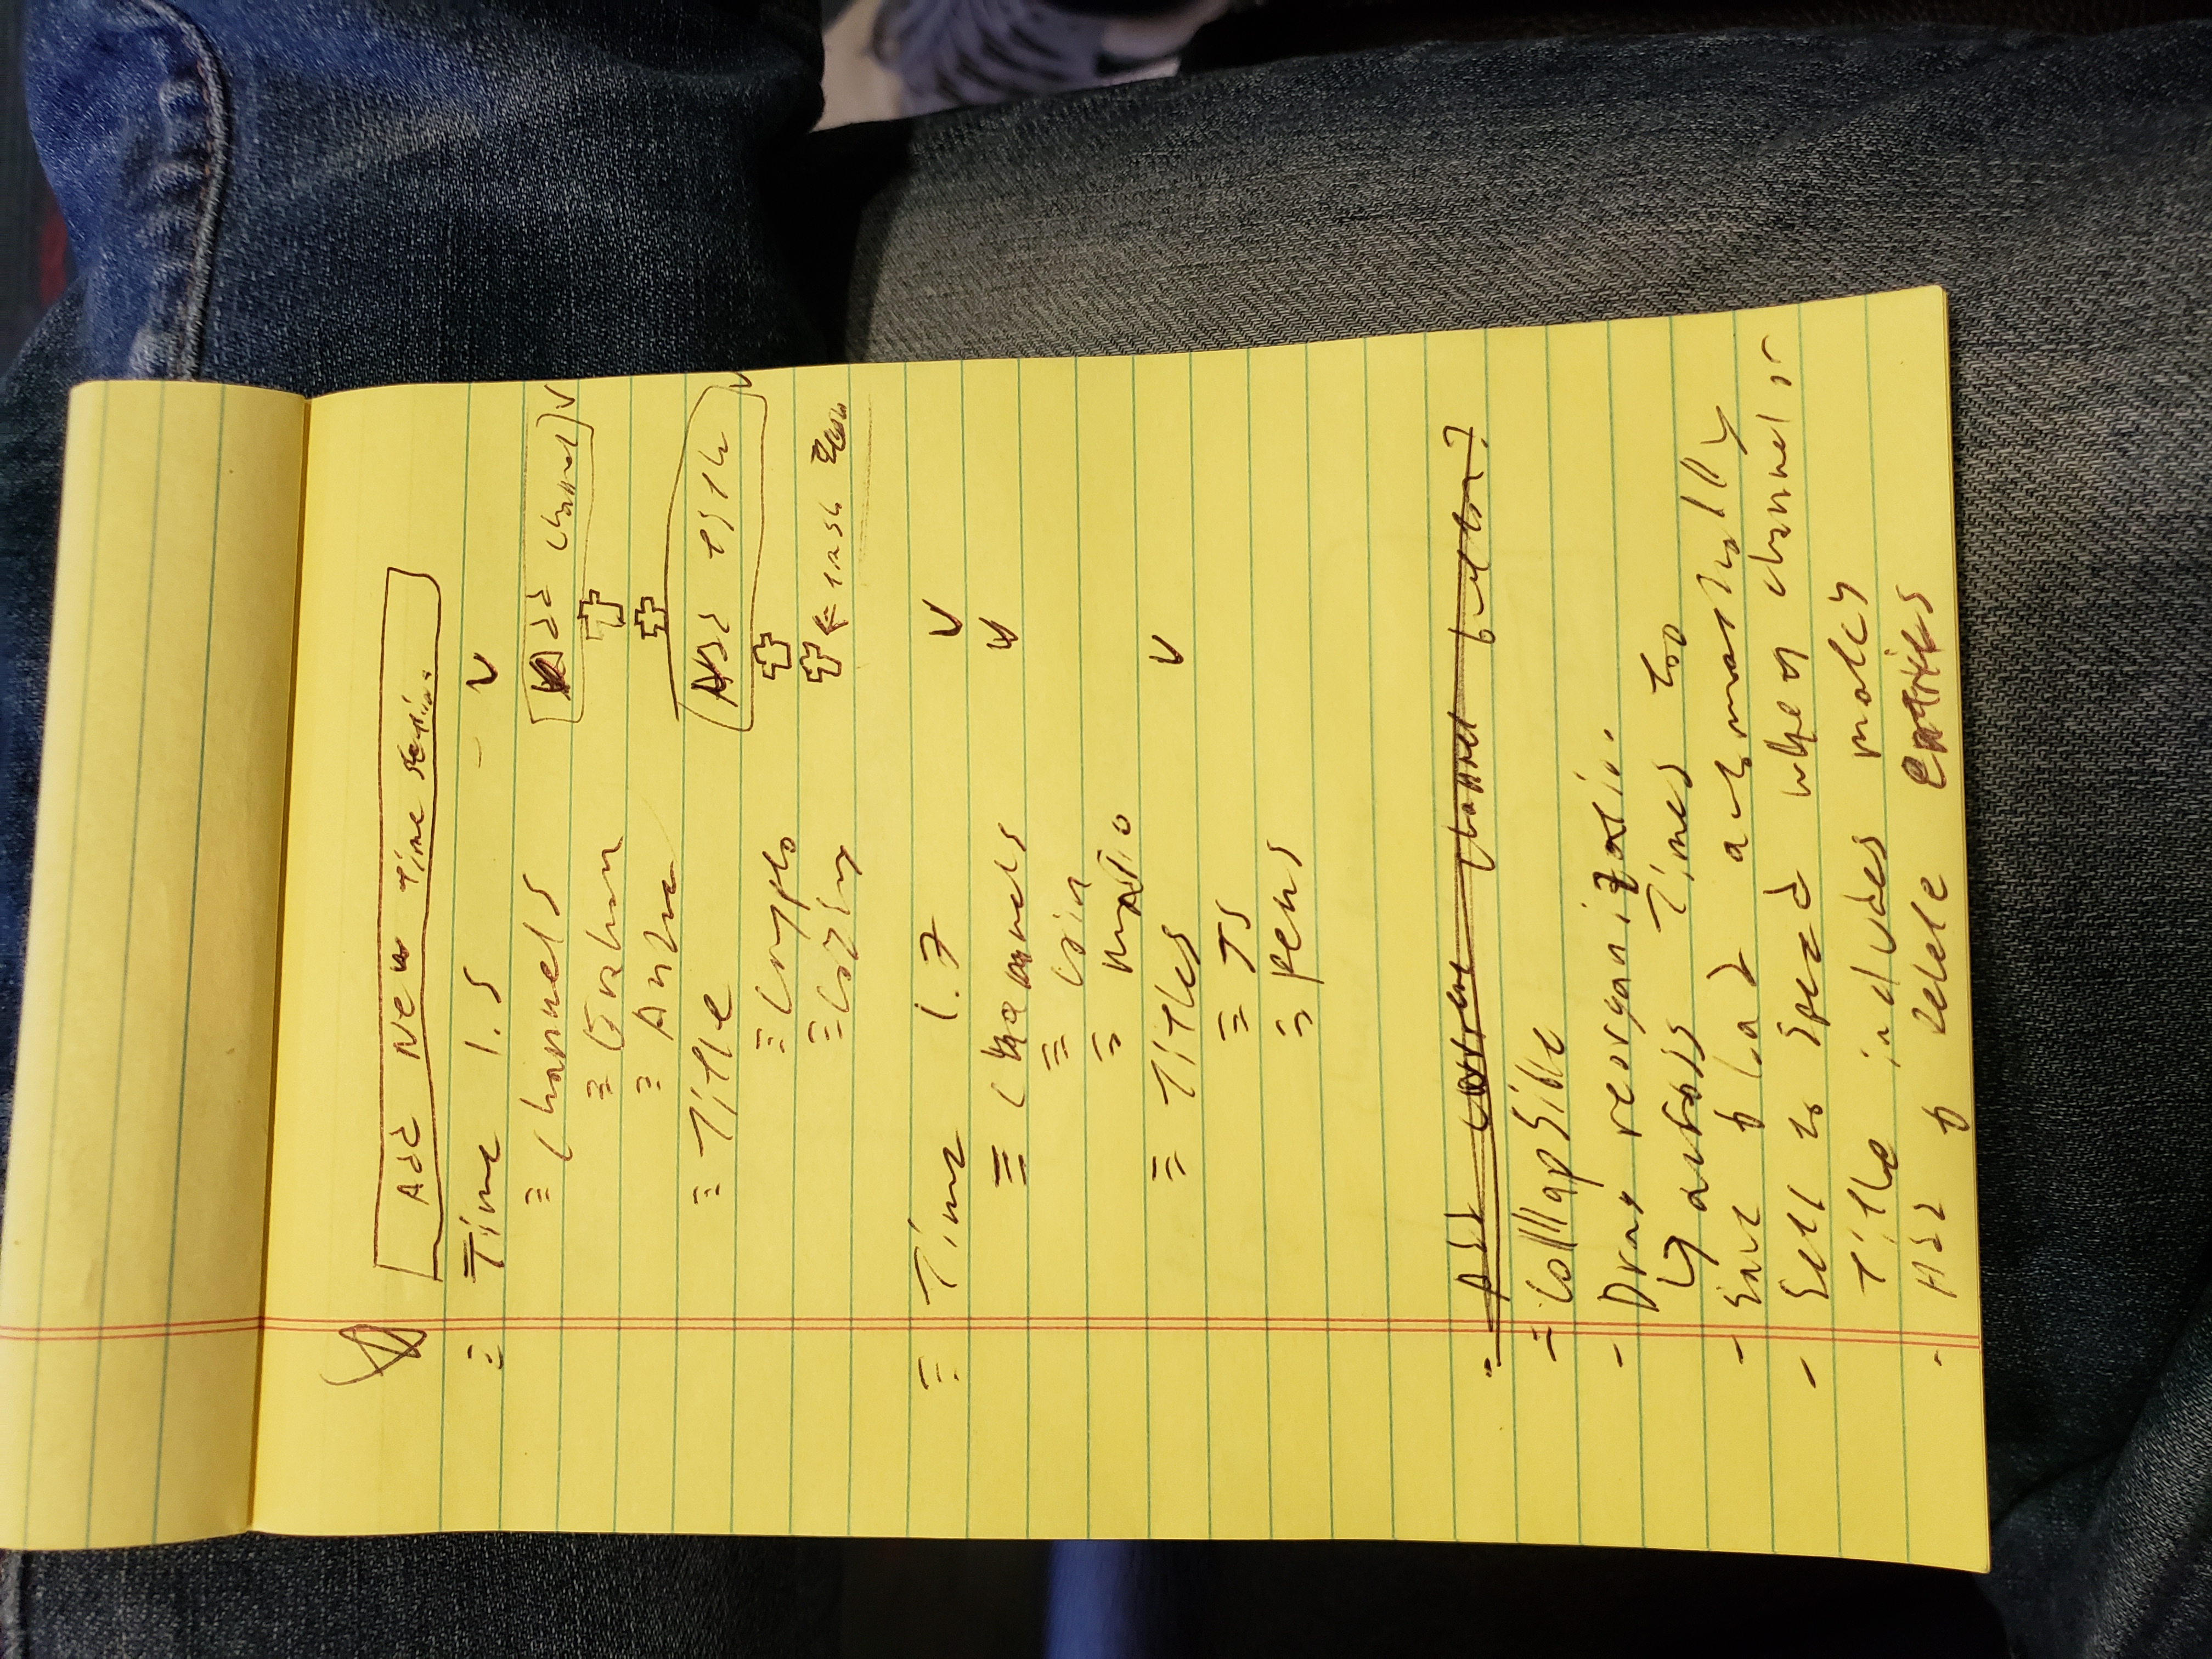 Add New Time Section
Time 1.5
Channels Add Channel
Graham
Title Add Title
Crypto
Coding ← trash Icon
Time 1.7
Channels
Coin
Titles
TS
Pens
- Add current channel button?
- Collapsible
- Drag reorganization
↳ across Times too
- Save & load automatically
- Sets to speed when channel or
Title includes match
- Add & delete entries